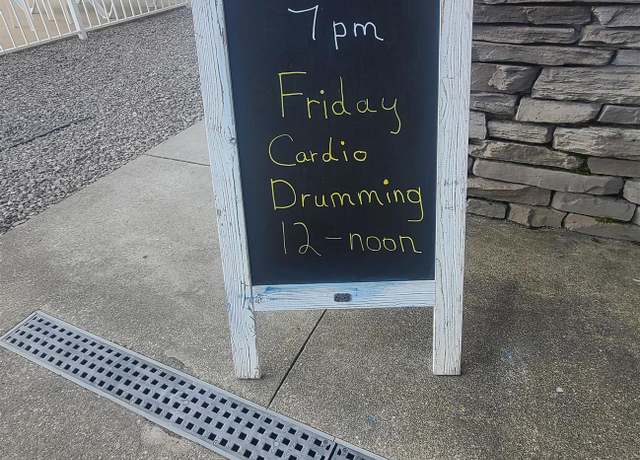 7pm
Friday
Cardio
Drumming
12-noon